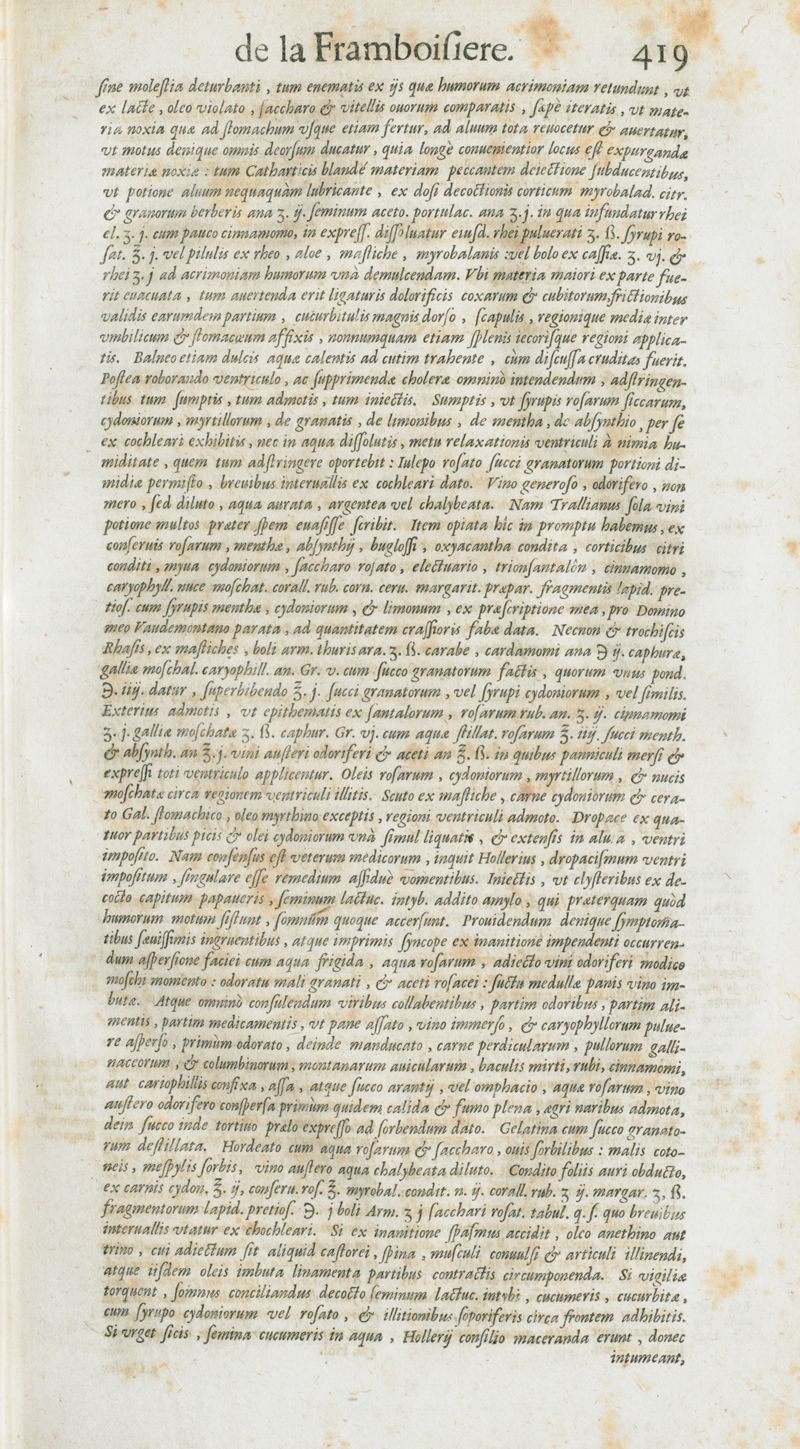 de la Framboiſiere. 419
ſine moleſtia deturbanti , tum enematis ex ijs quæ humorum acrimoniam retundunt , vt
ex lacte , oleo violato , ſaccharo & vitellis ouorum comparatis , ſæpe iteratis , vt mate-
ria noxia quæ ad ſtomachum vſque etiam fertur, ad aluum tota reuocetur & auertatur,
vt motus denique omnis deorſum ducatur , quia longè conuenientior locus eſt expurgandæ
materiæ noxiæ : tum Catharticis blandè materiam peccantem deiectione ſubducentibus,
vt potione aluum nequaquàm lubricante , ex doſi decoctionis corticum myrobalad. citr.
& granorum berberis ana ʒ. ij. ſeminum aceto. portulac. ana ʒ.j. in qua infundatur rhei
el. ʒ. j. cum pauco cinnamomo, in expreſſ. diſſoluatur eiuſd. rhei puluerati ʒ. ß. ſyrupi ro-
ſat. ℥. j. vel pilulis ex rheo , aloe , maſtiche , myrobalanis : vel bolo ex caſſiæ. ʒ. vj. &
rhei ʒ. j ad acrimoniam humorum vnà demulcendam. Vbi materia maiori ex parte fue-
rit euacuata , tum auertenda erit ligaturis dolorificis coxarum & cubitorum, frictionibus
validis earumdem partium , cucurbitulis magnis dorſo , ſcapulis , regionique mediæ inter
vmbilicum & ſtomacum affixis , nonnumquam etiam ſplenis iecoriſque regioni applica-
tis. Balneo etiam dulcis aquæ calentis ad cutim trahente , cùm diſcuſſa cruditas fuerit.
Poſtea roborando ventriculo , ac ſupprimendæ choleræ omninò intendendum , adſtringen-
tibus tum ſumptis , tum admotis , tum iniectis. Sumptis , vt ſyrupis roſarum ſiccarum,
cydoniorum , myrtillorum , de granatis , de limonibus , de mentha , de abſynthio , per ſe
ex cochleari exhibitis , nec in aqua diſſolutis , metu relaxationis ventriculi à nimia hu-
miditate , quem tum adſtringere oportebit : Iulepo roſato ſucci granatorum portioni di-
midiæ permiſto , breuibus interuallis ex cochleari dato. Vino generoſo , odorifero , non
mero , ſed diluto , aqua aurata , argentea vel chalybeata. Nam Trallianus ſola vini
potione multos præter ſpem euaſiſſe ſcribit. Item opiata hic in promptu habemus , ex
conſeruis roſarum , menthæ , abſynthij , bugloſſi , oxyacantha condita , corticibus citri
conditi , myua cydoniorum , ſaccharo roſato , electuario , trionſantalôn , cinnamomo ,
caryophyll. nuce moſchat. corall. rub. corn. ceru. margarit. præpar. fragmentis lapid. pre-
tioſ. cum ſyrupis menthæ , cydoniorum , & limonum , ex præſcriptione mea , pro Domino
meo Vaudemontano parata , ad quantitatem craſſioris fabæ data. Necnon & trochiſcis
Rhaſis, ex maſtiches , boli arm. thuris ara. ʒ. ß. carabe , cardamomi ana ℈ ij. caphuræ,
galliæ moſchal. caryophill. an. Gr. v. cum ſucco granatorum factis , quorum vnus pond.
℈. iiij. datur , ſuperbibendo ℥. j. ſucci granatorum , vel ſyrupi cydoniorum , vel ſimilis.
Exterius admotis , vt epithematis ex ſantalorum , roſarum rub. an. ʒ. ij. cinnamomi
ʒ. j. galliæ moſchatæ ʒ. ß. caphur. Gr. vj. cum aquæ ſtillat. roſarum ℥. iiij. ſucci menth.
& abſynth. an ℥. j. vini auſteri odoriferi & aceti an ℥. ß. in quibus panniculi merſi &
expreſſi toti ventriculo applicentur. Oleis roſarum , cydoniorum , myrtillorum , & nucis
moſchatæ circa regionem ventriculi illitis. Scuto ex maſtiche , carne cydoniorum & cera-
to Gal. ſtomachico , oleo myrthino exceptis , regioni ventriculi admoto. Dropace ex qua-
tuor partibus picis & olei cydoniorum vnà ſimul liquatis , & extenſis in alu.a , ventri
impoſito. Nam conſenſus eſt veterum medicorum , inquit Hollerius , dropaciſmum ventri
impoſitum , ſingulare eſſe remedium aſſiduè vomentibus. Iniectis , vt clyſteribus ex de-
cocto capitum papaueris , ſeminum lactuc. intyb. addito amylo , qui præterquam quòd
humorum motum ſiſtunt , ſomnum quoque accerſunt. Prouidendum denique ſymptoma-
tibus ſæuiſſimis ingruentibus , atque imprimis ſyncope ex inanitione impendenti occurren-
dum aſperſione faciei cum aqua frigida , aqua roſarum , adiecto vini odoriferi modico
moſchi momento : odoratu mali granati , & aceti roſacei : ſuctu medullæ panis vino im-
butæ. Atque omninò conſulendum viribus collabentibus , partim odoribus , partim ali-
mentis , partim medicamentis , vt pane aſſato , vino immerſo , & caryophyllorum pulue-
re aſperſo , primùm odorato , deinde manducato , carne perdicularum , pullorum galli-
naceorum , & columbinorum , montanarum auicularum , baculis mirti, rubi, cinnamomi,
aut cariophillis confixa , aſſa , atque ſucco arantij , vel omphacio , aquæ roſarum , vino
auſtero odorifero conſperſa primùm quidem calida & fumo plena , ægri naribus admota,
dein ſucco inde tortiuo prælo expreſſo ad ſorbendum dato. Gelatina cum ſucco granato-
rum deſtillata. Hordeato cum aqua roſarum & ſaccharo , ouis ſorbilibus : malis coto-
neis , meſpylis ſorbis , vino auſtero aqua chalybeata diluto. Condito foliis auri obducto,
ex carnis cydon. ℥. ij, conſeru. roſ. ℥. myrobal. condit. n. ij. corall. rub. ʒ ij. margar. ʒ. ß.
fragmentorum lapid. pretioſ. ℈. j boli Arm. ʒ j ſacchari roſat. tabul. q. ſ. quo breuibus
interuallis vtatur ex chochleari. Si ex inanitione ſpaſmus accidit , oleo anethino aut
trino , cui adiectum ſit aliquid caſtorei , ſpina , muſculi conuulſi & articuli illinendi,
atque iiſdem oleis imbuta linamenta partibus contractis circumponenda. Si vigiliæ
torquent , ſomnus conciliandus decocto ſeminum lactuc. intybi , cucumeris , cucurbitæ ,
cum ſyrupo cydoniorum vel roſato , & illitionibus ſoporiferis circa frontem adhibitis.
Si vrget ſitis , ſemina cucumeris in aqua , Hollerij conſilio maceranda erunt , donec
intumeant,